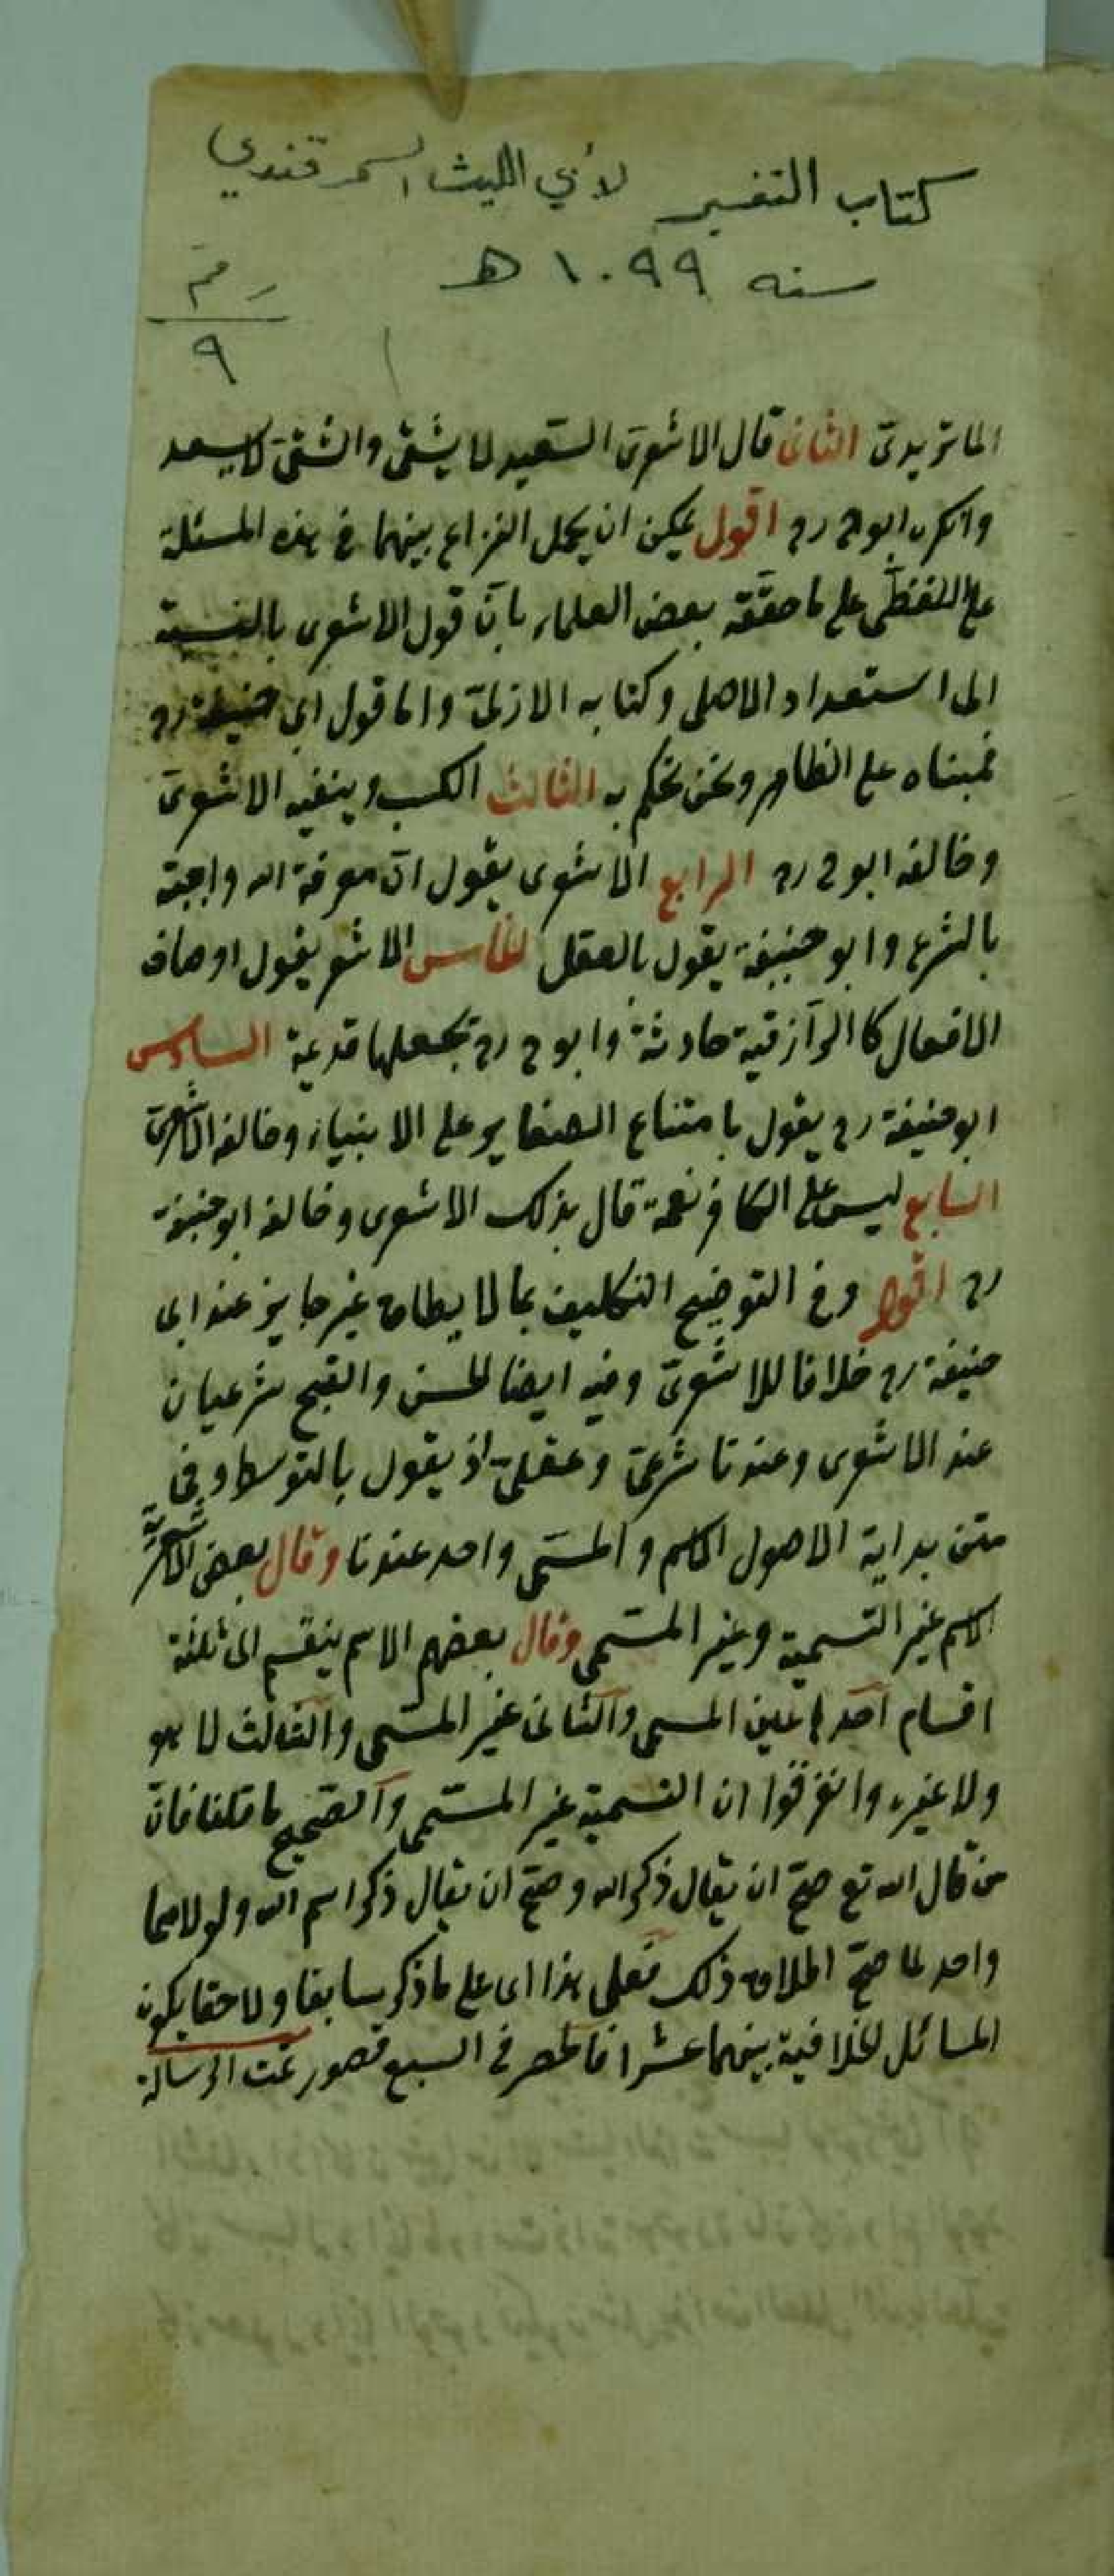 كتاب التفسير لأبي الليث السمرقندي
سنه ١٠٩٩ ه‍
رقم
٩
الماتريدى الثانى قال الاشعرى السعيد لا يشقى والشقى لا يسعد
وانكره ابو ح رح اقول يمكن ان يحمل النزاع بينهما فى هذه المسئلة
على اللفظى على ما حققه بعض العلماء بان قول الاشعرى بالنسبة
الى استعداد الاصلى وكتابه الازلى واما قول ابى حنيفة رح
فمبناه على الظاهر ونحن نحكم به الثالث الكسب وينفيه الاشعرى
وخالفه ابو ح رح الرابع الاشعرى يقول ان معرفة الله واجبة
بالشرع وابو حنيفة يقول بالعقل الخامس الاشعر يقول اوصاف
الافعال كالرازقية حادثة وابو ح رح يجعلها قديمة السادس
ابو حنيفة رح يقول بامتناع الصغاير على الانبياء وخالفه الاشعرى
السابع ليس على الكافر نعمة قال بذلك الاشعرى وخالفه ابو حنيفة
رح اقول وفى التوضيح التكليف بما لا يطاق غير جايز عند ابى
حنيفة رح خلافا للاشعرى وفيه ايضا الحسن والقبح شرعيان
عند الاشعرى وعندنا شرعى وعقلى اذ يقول بالتوسط وفى
متن بداية الاصول الاسم والمسمى واحد عندنا وقال بعض الاشعرية
الاسم غير التسمية وغير المسمى وقال بعضهم الاسم ينقسم الى ثلثة
اقسام احدها عين المسمى والثانى غير المسمى والثالث لا هو
ولا غيره واتفقوا ان التسمية غير المسمى والصحيح ما قلنا فان
من قال الله تع صح ان يقال ذكر الله وصح ان يقال ذكر اسم الله ولولا هما
واحد لما صح اطلاق ذلك فعلى هذا اى على ما ذكر سابقا ولاحقا يكون
المسائل الخلافية بينهما عشرا فالحصر فى السبع قصور تمت الرسالة